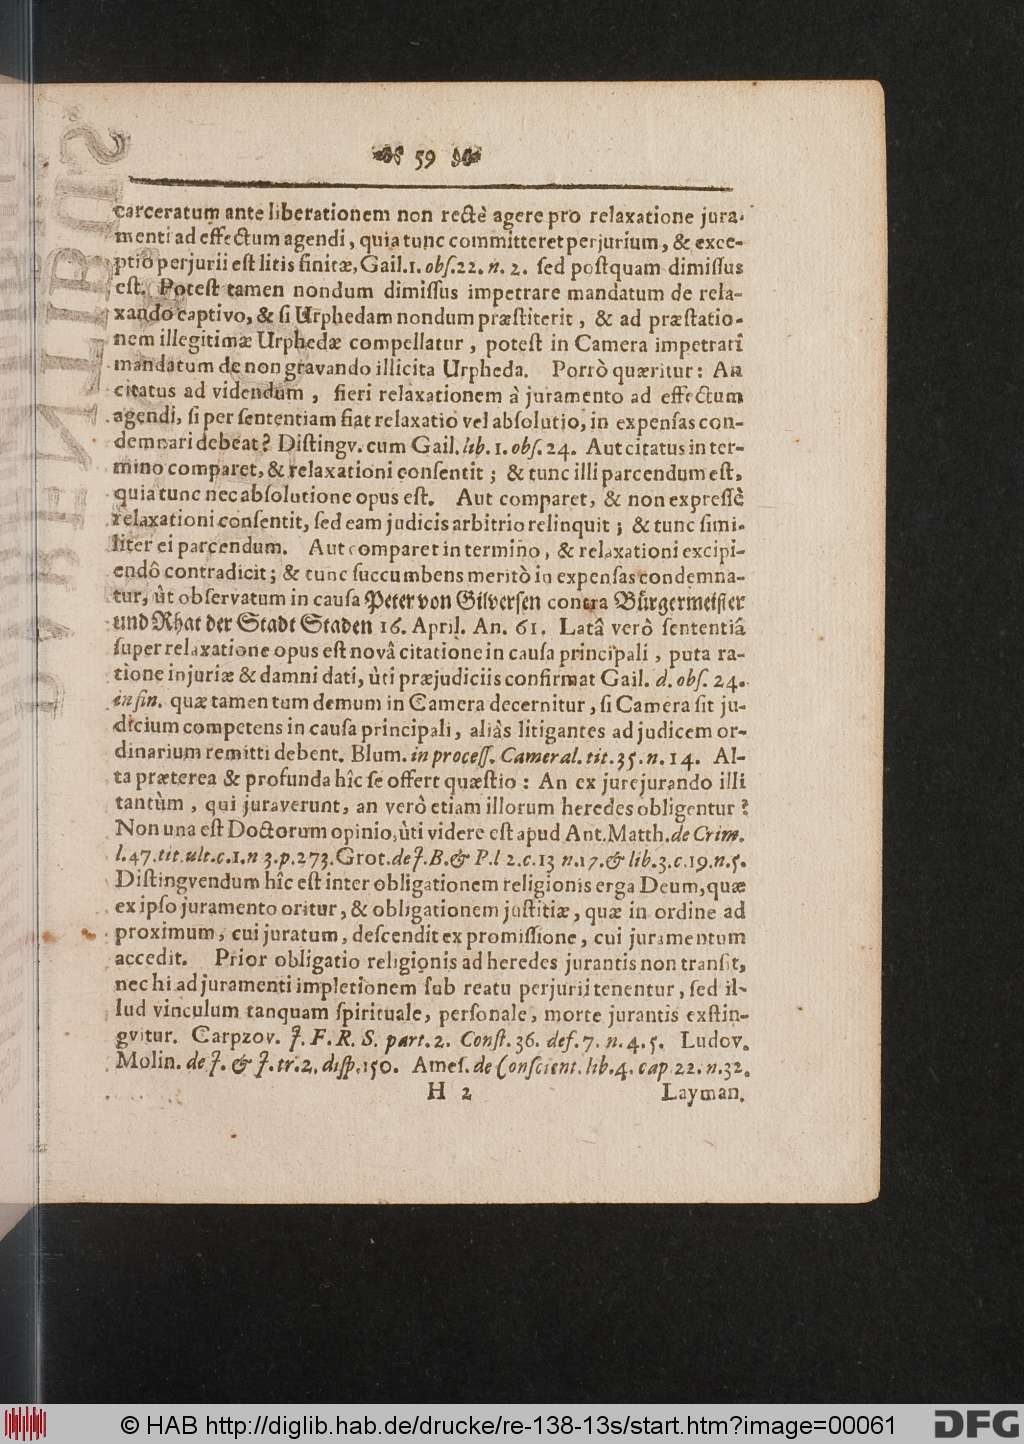 59
carceratum ante liberationem non rectè agere pro relaxatione jura-
menti ad effectum agendi, quia tunc committeret perjurium, & exce-
ptio perjurii est litis finitæ, Gail. 1. obſ. 22. n. 2. ſed poſtquam dimiſſus
eſt. Poteſt tamen nondum dimiſſus impetrare mandatum de rela-
xando captivo, & ſi Urphedam nondum præſtiterit, & ad præſtatio-
nem illegitimæ Urphedæ compellatur, poteſt in Camera impetrari
mandatum de non gravando illicita Urpheda. Porrò quæritur: An
citatus ad videndum, fieri relaxationem à juramento ad effectum
agendi, ſi per ſententiam fiat relaxatio vel abſolutio, in expenſas con-
demnari debeat? Diſtingv. cum Gail. lib. 1. obſ. 24. Aut citatus in ter-
mino comparet, & relaxationi conſentit; & tunc illi parcendum eſt,
quia tunc nec abſolutione opus eſt. Aut comparet, & non expreſſè
relaxationi conſentit, ſed eam judicis arbitrio relinquit; & tunc ſimi-
liter ei parcendum. Aut comparet in termino, & relaxationi excipi-
endô contradicit; & tunc ſuccumbens meritò in expenſas condemna-
tur, ùt obſervatum in cauſa Peter von Gilverſen contra Bürgermeiſter
und Rhat der Stadt Staden 16. April. An. 61. Latâ verò ſententiâ
ſuper relaxatione opus eſt novâ citatione in cauſa principali, puta ra-
tione injuriæ & damni dati, ùti præjudiciis confirmat Gail. d. obſ. 24.
in fin. quæ tamen tum demum in Camera decernitur, ſi Camera ſit ju-
dicium competens in cauſa principali, aliàs litigantes ad judicem or-
dinarium remitti debent. Blum. in proceſſ. Cameral. tit. 35. n. 14. Al-
ta præterea & profunda hîc ſe offert quæſtio: An ex jurejurando illi
tantùm, qui juraverunt, an verò etiam illorum heredes obligentur?
Non una eſt Doctorum opinio, ùti videre eſt apud Ant. Matth. de Crim.
l. 47. tit. ult. c. 1. n 3. p. 273. Grot. de J. B. & P. l 2. c. 13 n. 17. & lib. 3. c. 19. n. 5.
Diſtingvendum hîc eſt inter obligationem religionis erga Deum, quæ
ex ipſo juramento oritur, & obligationem juſtitiæ, quæ in ordine ad
proximum, cui juratum, deſcendit ex promiſſione, cui juramentum
accedit. Prior obligatio religionis ad heredes jurantis non tranſit,
nec hi ad juramenti impletionem ſub reatu perjurii tenentur, ſed il-
lud vinculum tanquam ſpirituale, perſonale, morte jurantis exſtin-
gvitur. Carpzov. J. F. R. S. part. 2. Conſt. 36. def. 7. n. 4. 5. Ludov.
Molin. de J. & J. tr. 2. diſp. 150. Ameſ. de Conſcient. lib. 4. cap 22. n. 32.
H 2 Layman.
© HAB http://diglib.hab.de/drucke/re-138-13s/start.htm?image=00061
DFG